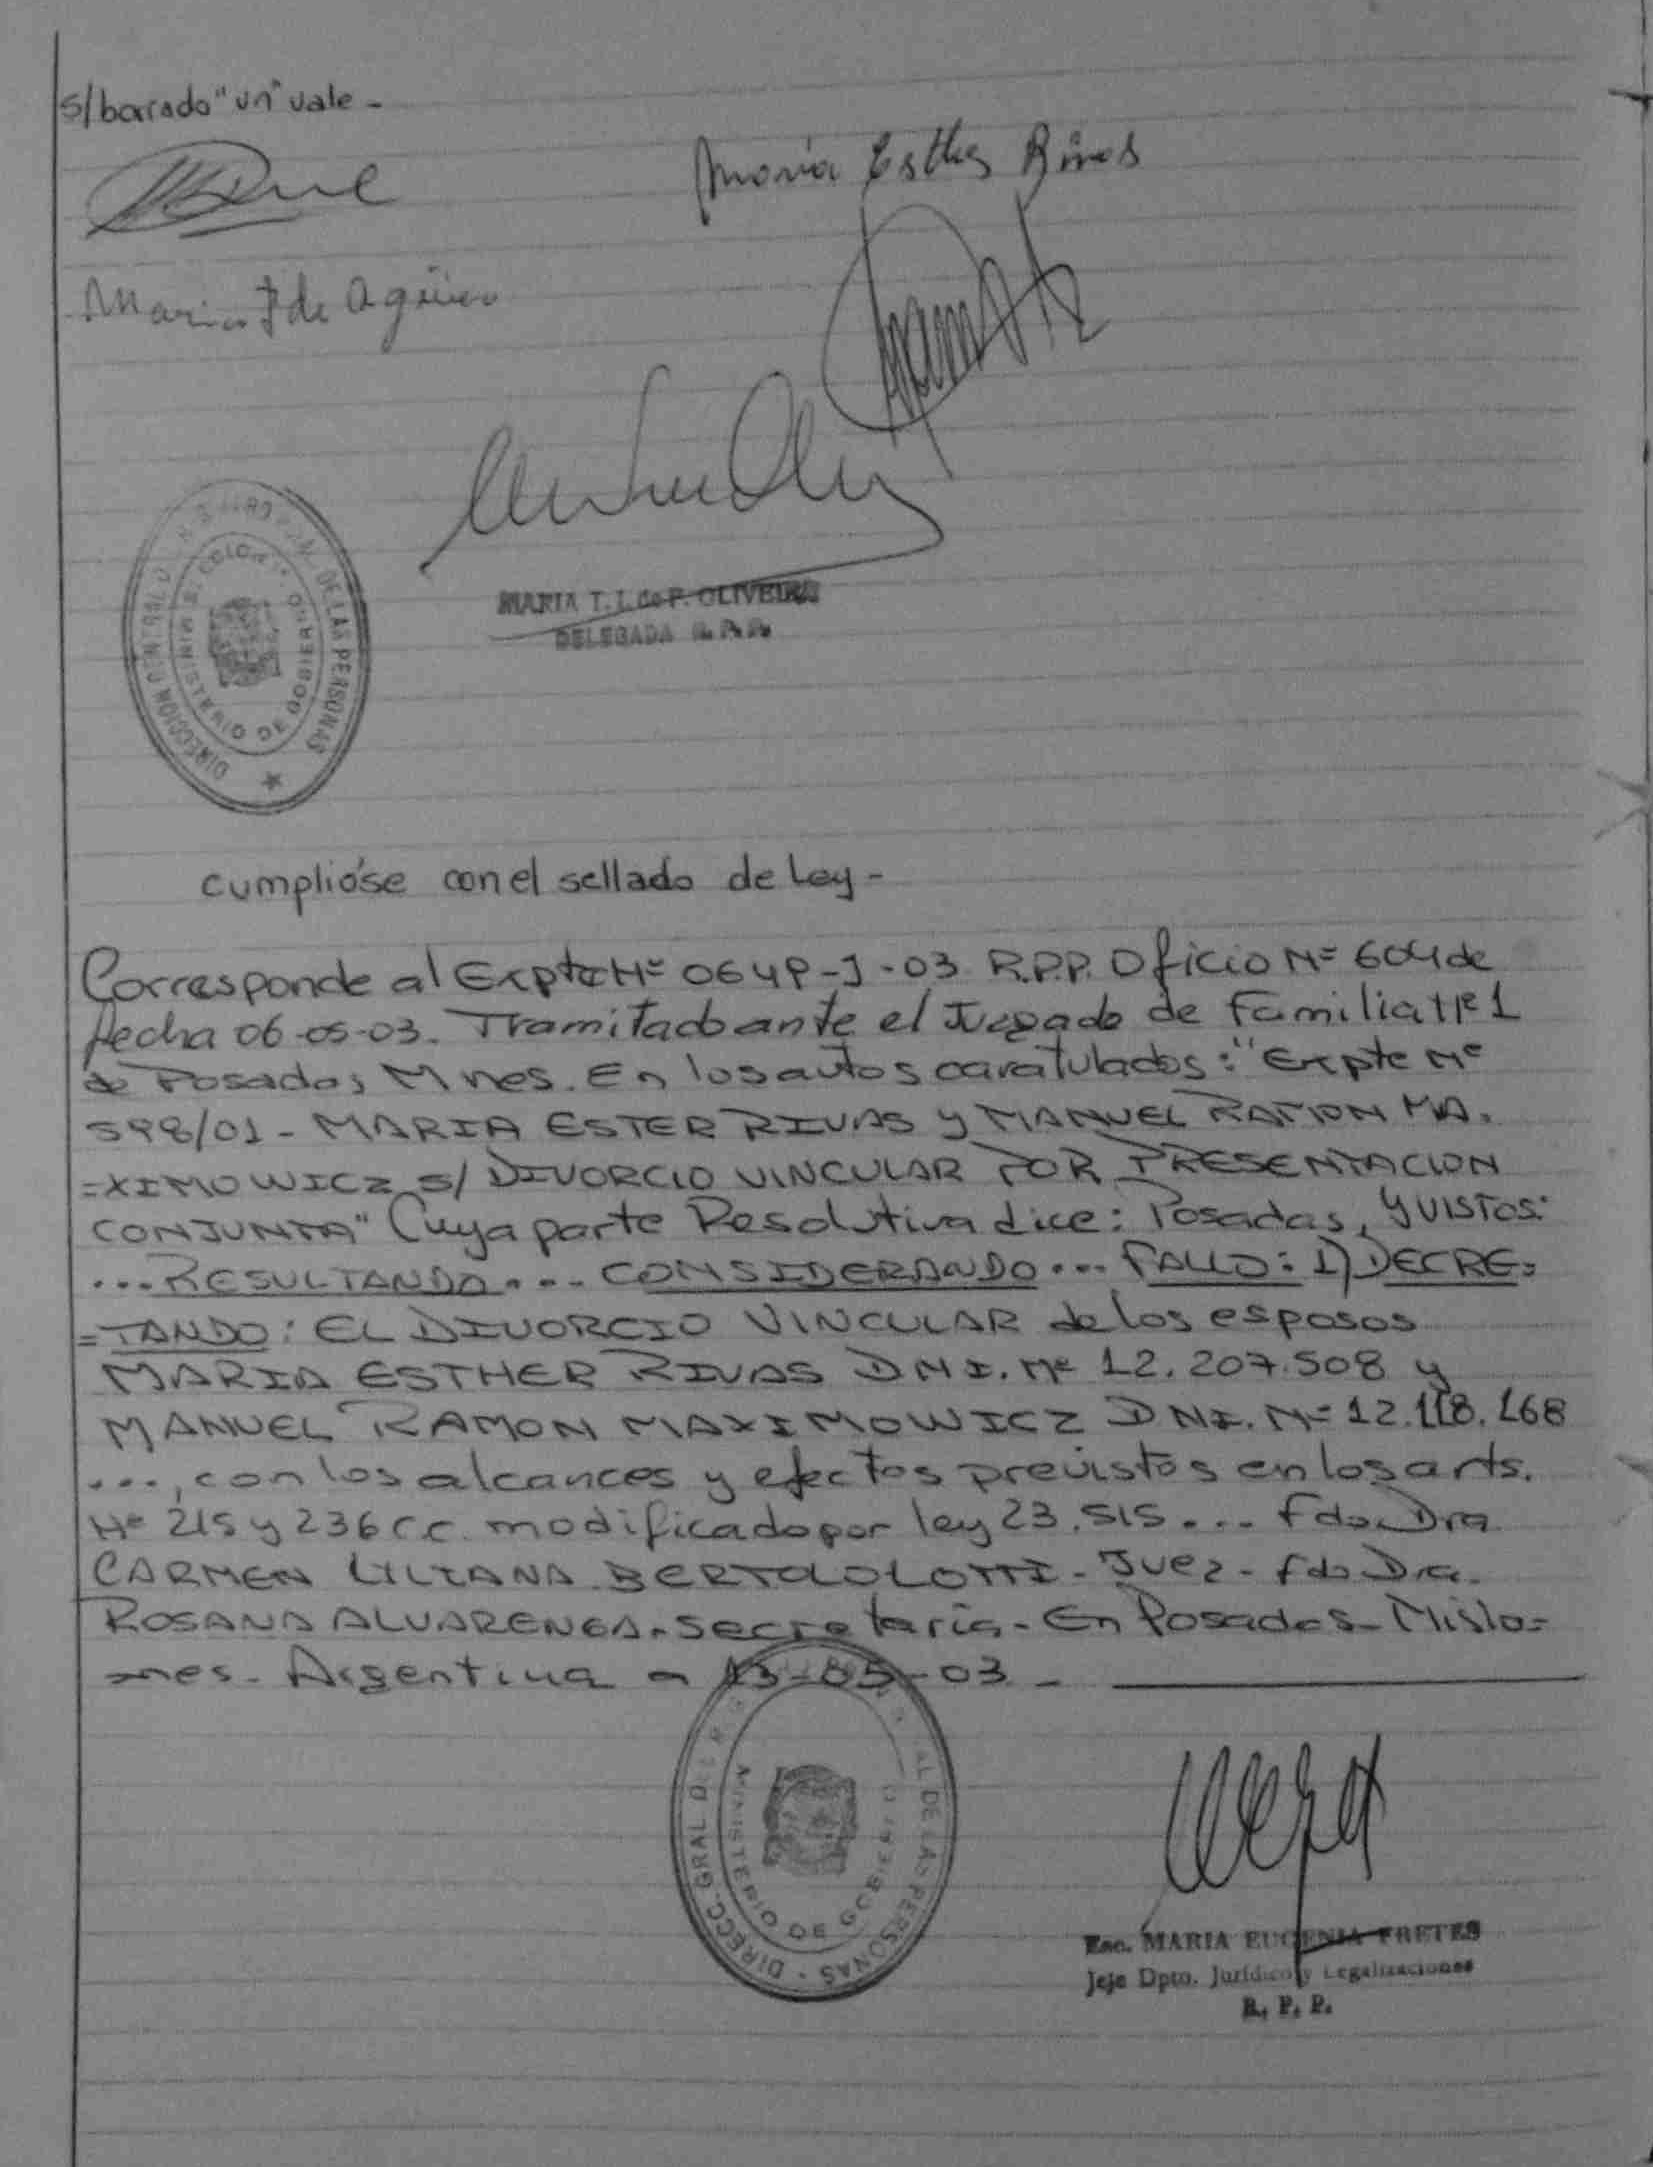 s/borrado "un" vale -
Maria Esther Rivas
Maria de Agüero
MARIA T. I. de P. OLIVEIRA
DELEGADA R. P. P.
DE LAS PERSONAS
MINISTERIO DE GOBIERNO
cumplióse con el sellado de Ley -
Corresponde al Expte Nº 0649-J-03 R.P.P. Oficio Nº 604 de
fecha 06-05-03. Tramitado ante el Juzgado de Familia Nº 1
de Posadas, Mnes. En los autos caratulados: "Expte Nº
598/01 - MARIA ESTER RIVAS y MANUEL RAMON MA=
=XIMOWICZ s/ DIVORCIO VINCULAR POR PRESENTACION
CONJUNTA" Cuya parte Resolutiva dice: Posadas, Y VISTOS:
...RESULTANDO... CONSIDERANDO... FALLO: 1) DECRE=
=TANDO: EL DIVORCIO VINCULAR de los esposos
MARIA ESTHER RIVAS DNI. Nº 12.207.508 y
MANUEL RAMON MAXIMOWICZ DNI. Nº 12.118.168
..., con los alcances y efectos previstos en los arts.
Nº 215 y 236 C.C. modificado por ley 23.515... Fdo. Dra
CARMEN LILIANA BERTOLOLOTTI - Juez - fdo Dra.
ROSANA ALVARENGA - Secretaria - En Posadas - Misio=
=nes - Argentina a 13-05-03. -
DIRECC. GRAL DEL R
AL DE LAS PERSONAS
MINISTERIO DE GOBIERNO
Esc. MARIA EUGENIA FRETES
Jefe Dpto. Jurídico y Legalizaciones
R. P. P.